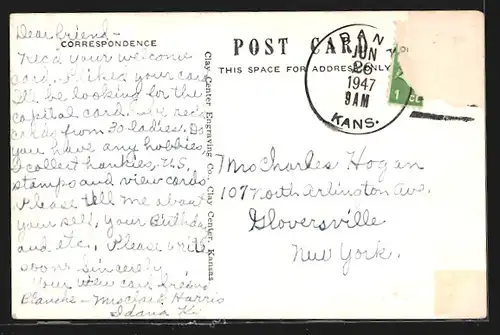 Dear friend -
CORRESPONDENCE
rec'd your welcome
card. Liked your card
I'll be looking for the
capital card. I've rec'd
cards from 30 ladies. Do
you have any hobbies,
I collect hankies, U.S.
stamps and view cards
Please tell me about
your self, your Birthday
and etc. Please write
soon. Sincerely,
Your view card friend
Blanche - Mrs Harris
Idana Ks
Clay Center Engraving Co., Clay Center, Kansas
POST CARD
THIS SPACE FOR ADDRESS ONLY
IDANA
JUN
26
1947
9AM
KANS.
1
Mrs Charles Hogan
107 North Arlington Ave.
Gloversville
New York.